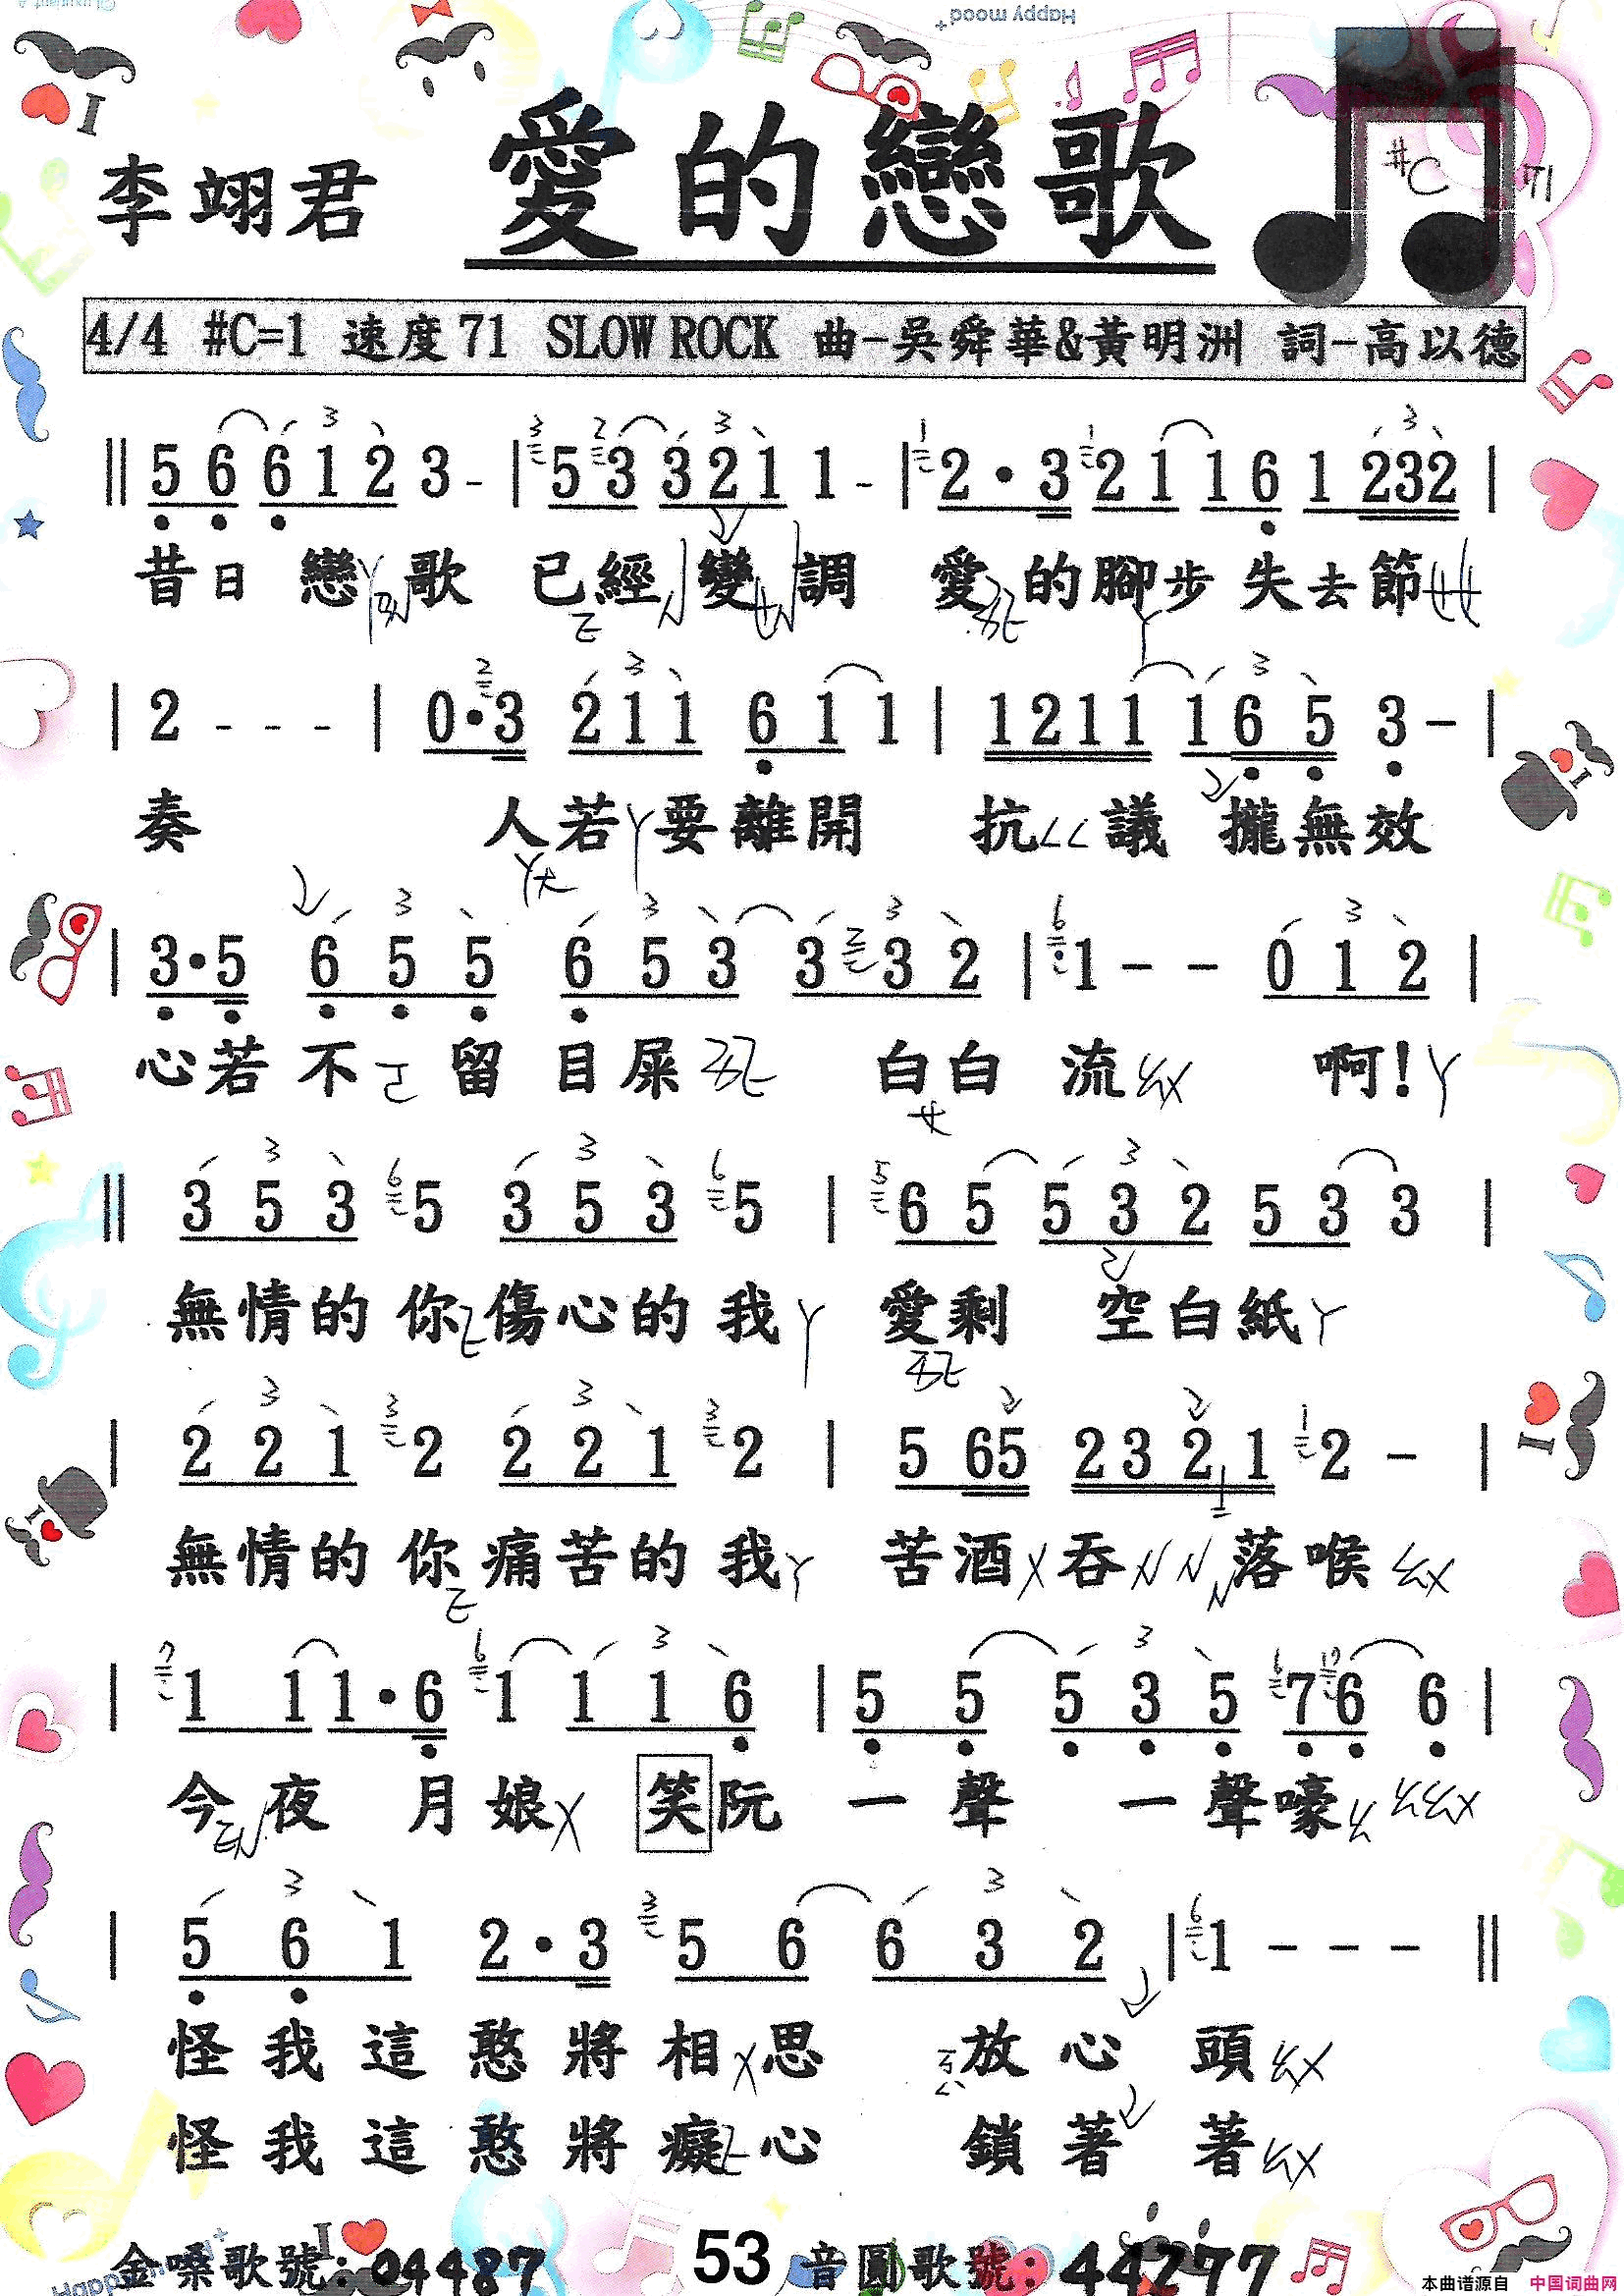 Happy mood
李翊君 愛的戀歌
#C 71
4/4 #C=1 速度71 SLOW ROCK 曲-吳舜華&黃明洲 詞-高以德
‖ 5 6 6 1 2 3 - | 5 3 3 2 1 1 - | 2 · 3 2 1 1 6 1 232 |
昔日 戀歌 已經 變調 愛的腳步失去節
| 2 - - - | 0·3 2 1 1 6 1 1 | 1211 1 6 5 3 - |
奏 人若要離開 抗議 攏無效
| 3·5 6 5 5 6 5 3 3 3 2 | 1 - - 0 1 2 |
心若不留目屎 白白流 啊!
‖ 3 5 3 5 3 5 3 5 | 6 5 5 3 2 5 3 3 |
無情的你 傷心的我 愛剩 空白紙
| 2 2 1 2 2 2 1 2 | 5 65 2321 2 - |
無情的你 痛苦的我 苦酒吞落喉
| 1 1 1·6 1 1 1 6 | 5 5 5 3 5 7 6 6 |
今夜 月娘 笑阮 一聲 一聲嚎
| 5 6 1 2·3 5 6 6 3 2 | 1 - - - ‖
怪我這憨將相思 放心頭
怪我這憨將癡心 鎖著著
金嗓歌號:04487 53 音圓歌號:44277
本曲谱源自 中国词曲网